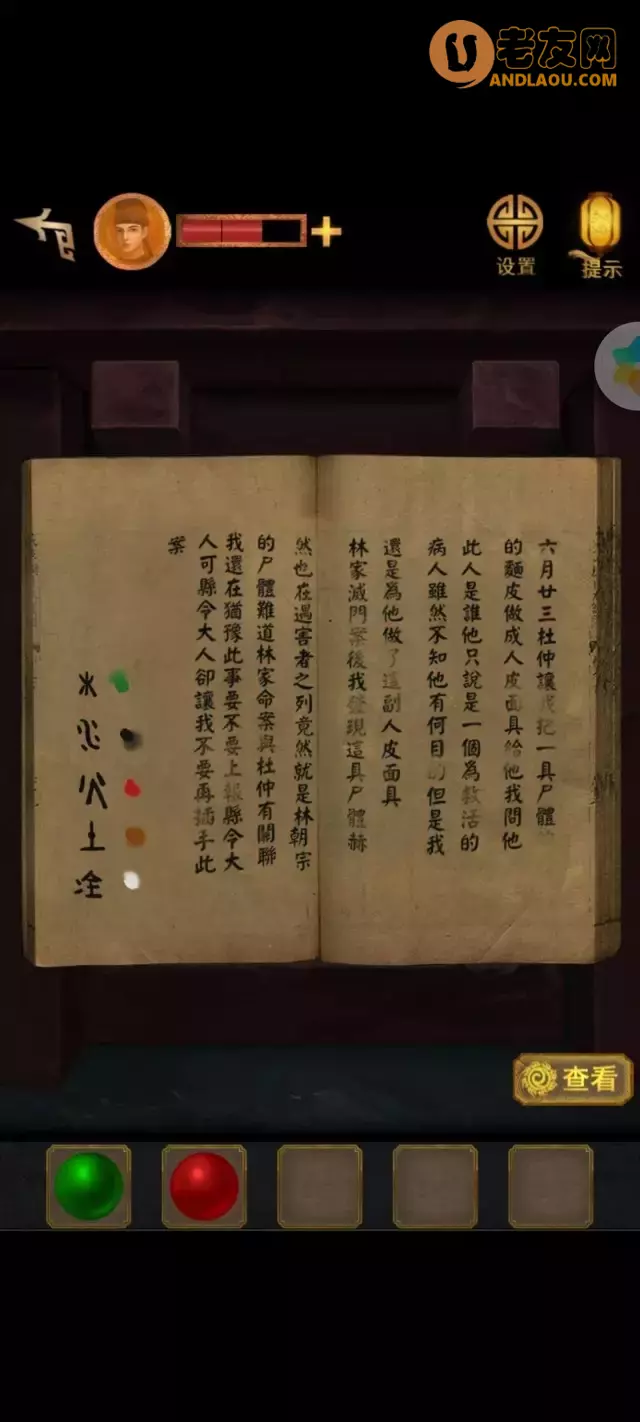 老友网
ANDLAOU.COM
设置
提示
六月廿三杜仲讓我把一具尸體
的麵皮做成人皮面具給他我問他
此人是誰他只說是一個為救活的
病人雖然不知他有何目的但是我
還是為他做了這副人皮面具
林家滅門案後我發現這具尸體赫
然也在遇害者之列竟然就是林朝宗
的尸體難道林家命案與杜仲有關聯
我還在猶豫此事要不要上報縣令大
人可縣令大人卻讓我不要再插手此
案
木
水
火
土
金
查看